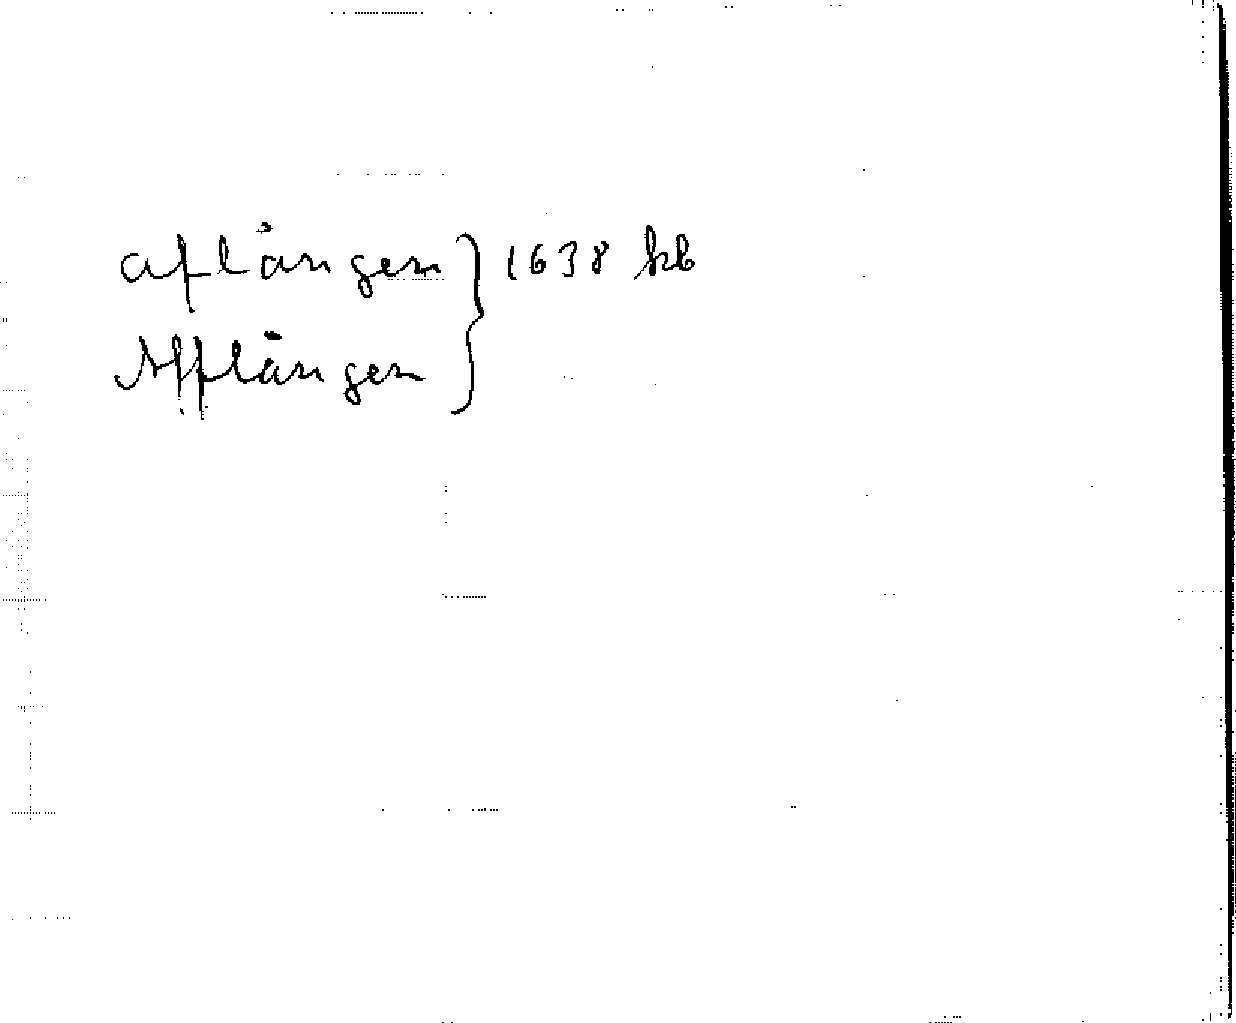 aflången } 1638 kb
Afflången